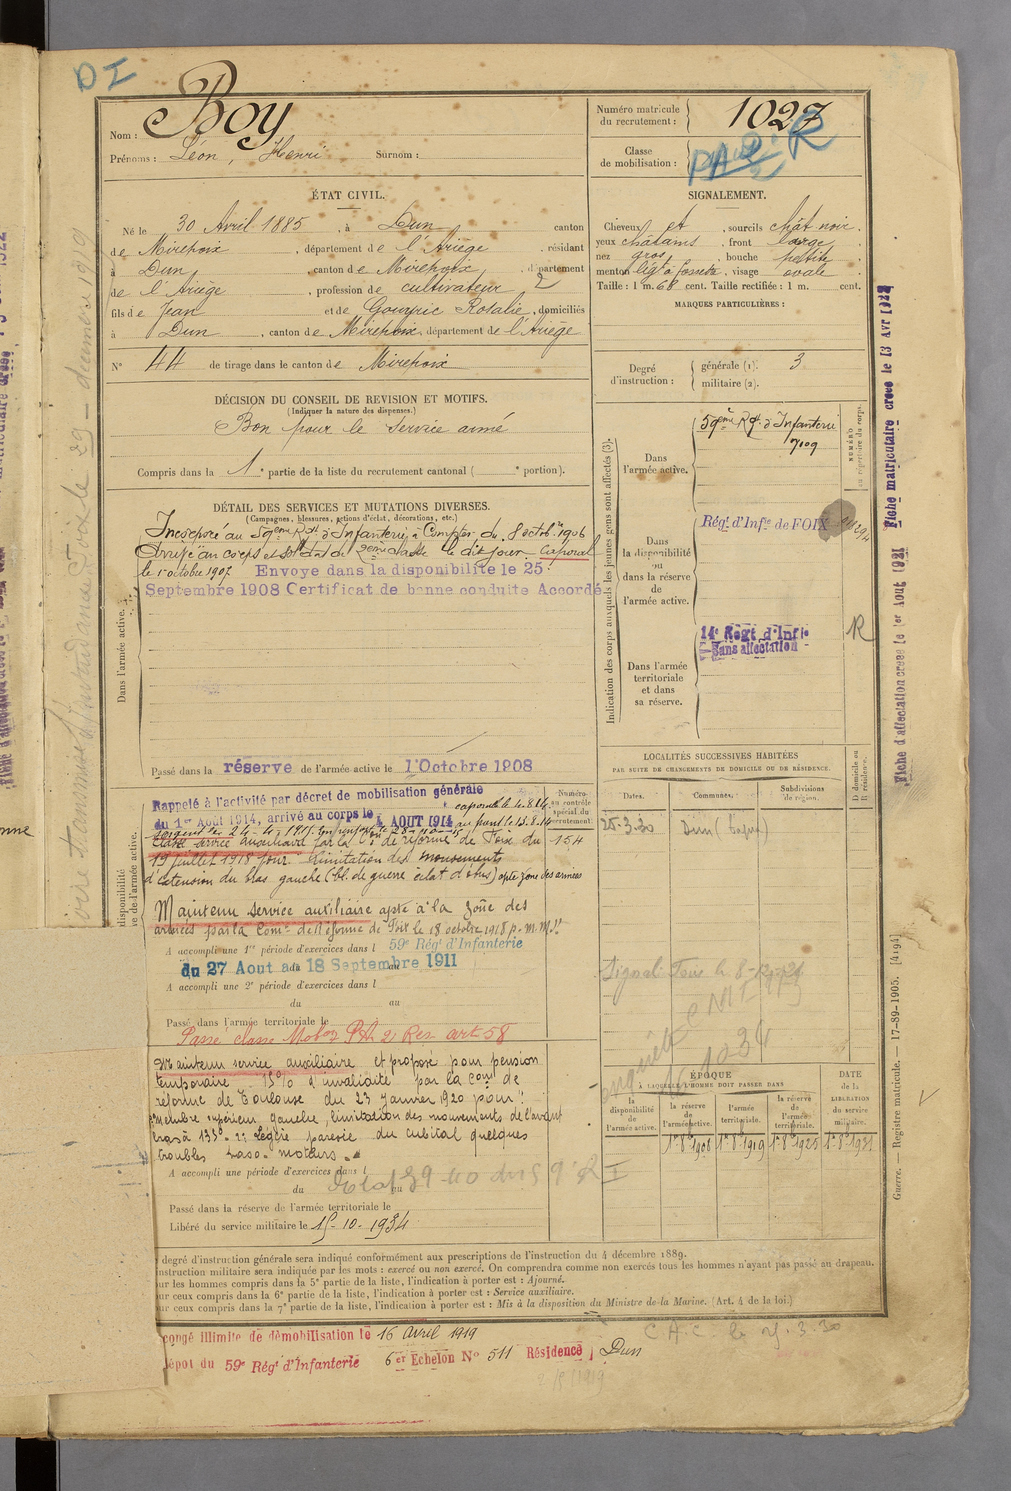 DI
Nom : Boy
Prénoms : Léon, Henri Surnom :
Numéro matricule du recrutement : 1027
Classe de mobilisation :
R
ÉTAT CIVIL.
Né le 30 Avril 1885, à Dun canton
de Mirepoix, département de l'Ariège, résidant
à Dun, canton de Mirepoix, département
de l'Ariège, profession de cultivateur
fils de Jean et de Gouzric Rosalie, domiciliés
à Dun, canton de Mirepoix, département de l'Ariège
N° 44 de tirage dans le canton de Mirepoix
SIGNALEMENT.
Cheveux et, sourcils chât noir
yeux châtains, front large
nez gros, bouche petite
menton légt à fossette, visage ovale
Taille : 1 m. 62 cent. Taille rectifiée : 1 m. cent.
2
MARQUES PARTICULIÈRES :
Degré d'instruction : générale (1). 3
militaire (2).
DÉCISION DU CONSEIL DE REVISION ET MOTIFS.
(Indiquer la nature des dispenses.)
Bon pour le service armé
Compris dans la 1e partie de la liste du recrutement cantonal ( e portion).
DÉTAIL DES SERVICES ET MUTATIONS DIVERSES.
(Campagnes, blessures, actions d'éclat, décorations, etc.)
Incorporé au 59ème Rgt d'Infanterie à Compter du 8 octobre 1906
Arrivé au corps et soldat de 2ème classe le dit jour. Caporal
le 1 octobre 1907. Envoye dans la disponibilite le 25
Septembre 1908 Certificat de bonne conduite Accordé
Dans l'armée active.
Passé dans la réserve de l'armée active le 1er Octobre 1908
Indication des corps auxquels les jeunes gens sont affectés (3).
Dans l'armée active.
59ème Rgt d'Infanterie
7009
NUMÉRO au répertoire du corps.
Dans la disponibilité ou dans la réserve de l'armée active.
Régt d'Infie de FOIX
Dans l'armée territoriale et dans sa réserve.
14e Regt d'Infie
Sans affectation
R
LOCALITÉS SUCCESSIVES HABITÉES
PAR SUITE DE CHANGEMENTS DE DOMICILE OU DE RÉSIDENCE.
Dates. Communes. Subdivisions de région. D domicile ou R résidence.
25-3-30 Dun
Rappelé à l'activité par décret de mobilisation générale
du 1er Aout 1914, arrivé au corps le 4 AOUT 1914
Numéro au contrôle spécial du recrutement
154
Classé service auxiliaire par la Con de réforme de Foix du
19 juillet 1918 pour limitation des mouvements
d'extension du bras gauche (bl. de guerre éclat d'obus) apte zone des armées
Maintenu service auxiliaire apte à la zone des
armées par la Comon de Réforme de Foix le 18 octobre 1918
A accompli une 1re période d'exercices dans l 59e Régt d'Infanterie
du 27 Aout au 18 Septembre 1911
A accompli une 2e période d'exercices dans l
du au
Passé dans l'armée territoriale le
Passé classe Mobon PA 2 Res art 58
Maintenu service auxiliaire et proposé pour pension
temporaire 15% d'invalidité par la Com de
réforme de Toulouse du 23 janvier 1920 pour :
membre supérieur gauche, limitation des mouvements de l'avant
bras à 135° 2° Légère parésie du cubital quelques
troubles vaso-moteurs.
A accompli une période d'exercices dans l
du au
Passé dans la réserve de l'armée territoriale le
Libéré du service militaire le 15-10-1934
ÉPOQUE À LAQUELLE L'HOMME DOIT PASSER DANS
la disponibilité de l'armée active. la réserve de l'armée active. l'armée territoriale. la réserve de l'armée territoriale.
DATE de la LIBÉRATION du service militaire.
1er 8bre 1906 1er 8bre 1919 1er 8bre 1925 1er 8bre 1931
degré d'instruction générale sera indiqué conformément aux prescriptions de l'instruction du 4 décembre 1889.
instruction militaire sera indiquée par les mots : exercé ou non exercé. On comprendra comme non exercés tous les hommes n'ayant pas passé au drapeau.
our les hommes compris dans la 5e partie de la liste, l'indication à porter est : Ajourné.
ur ceux compris dans la 6e partie de la liste, l'indication à porter est : Service auxiliaire.
ur ceux compris dans la 7e partie de la liste, l'indication à porter est : Mis à la disposition du Ministre de la Marine. (Art. 4 de la loi.)
congé illimité de démobilisation le 16 avril 1919
épot du 59e Régt d'Infanterie 6er Echelon N° 511 Résidence Dun
Fiche matriculaire creee le 13 Avr 1922
Fiche d'affectation creee le 1er Aout 1921
Guerre. — Registre matricule. — 17-89-1905. [4194]